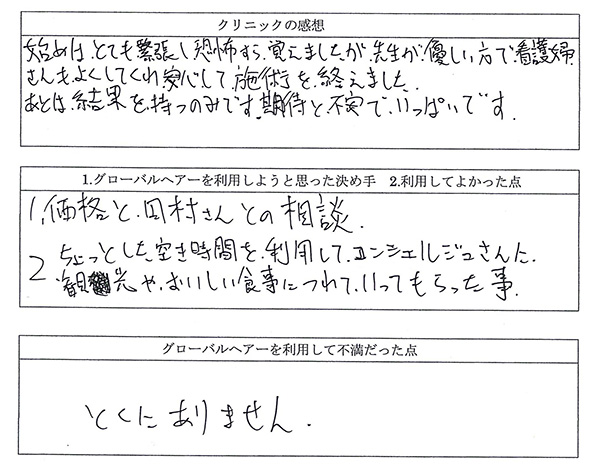 クリニックの感想
始めは、とても緊張し恐怖すら、覚えましたが、先生が、優しい方で、看護婦
さんも、よくしてくれ安心して、施術を、終えました。
あとは、結果を、持つのみです。期待と、不安で、いっぱいです。
1.グローバルヘアーを利用しようと思った決め手 2.利用してよかった点
1.価格と、田村さんとの相談.
2 ちょっとした、空き時間を、利用して、コンシェルジュさんに、
観光や、おいしい食事につれて、いってもらった事.
グローバルヘアーを利用して不満だった点
とくにありません.